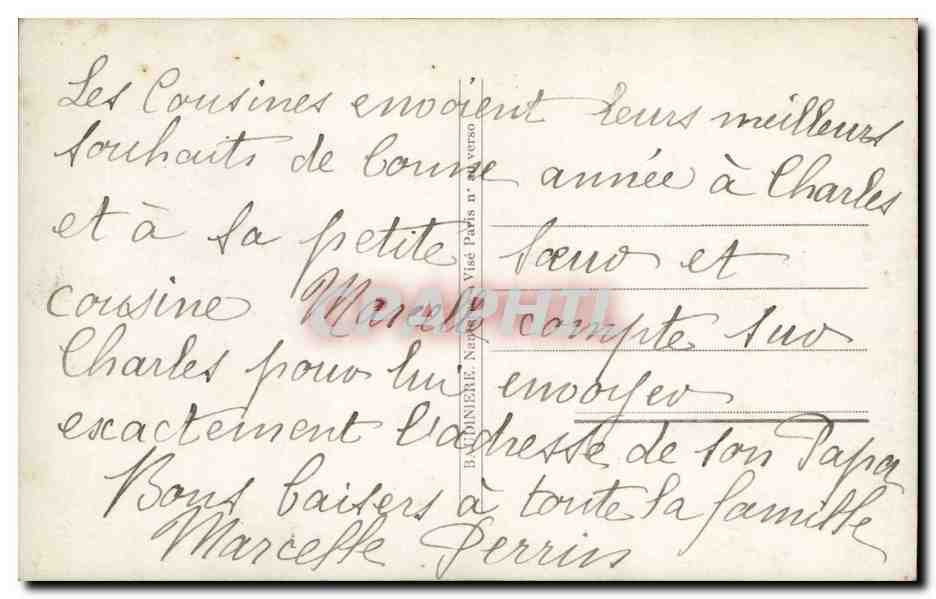 Les Cousines envoient leurs meilleurs
souhaits de bonne année à Charles
et à sa petite sœur et
cousine Marcelle compte sur
Charles pour lui envoyer
exactement l'adresse de son Papa
Bons baisers à toute la famille
Marcelle Perrin
BAUDINIERE. Nantes - Visé Paris n° au verso
CPAPHIL